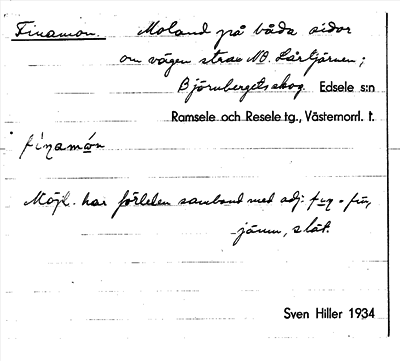 Finamon. Moland på båda sidor
om vägen strax NO. Lårtjärnen;
Björnbergets skog Edsele s:n
Ramsele och Resele tg., Västernorrl. l.
fínamón
Möjl. har förleden samband med adj. fin
jämn, slät.
Sven Hiller 1934